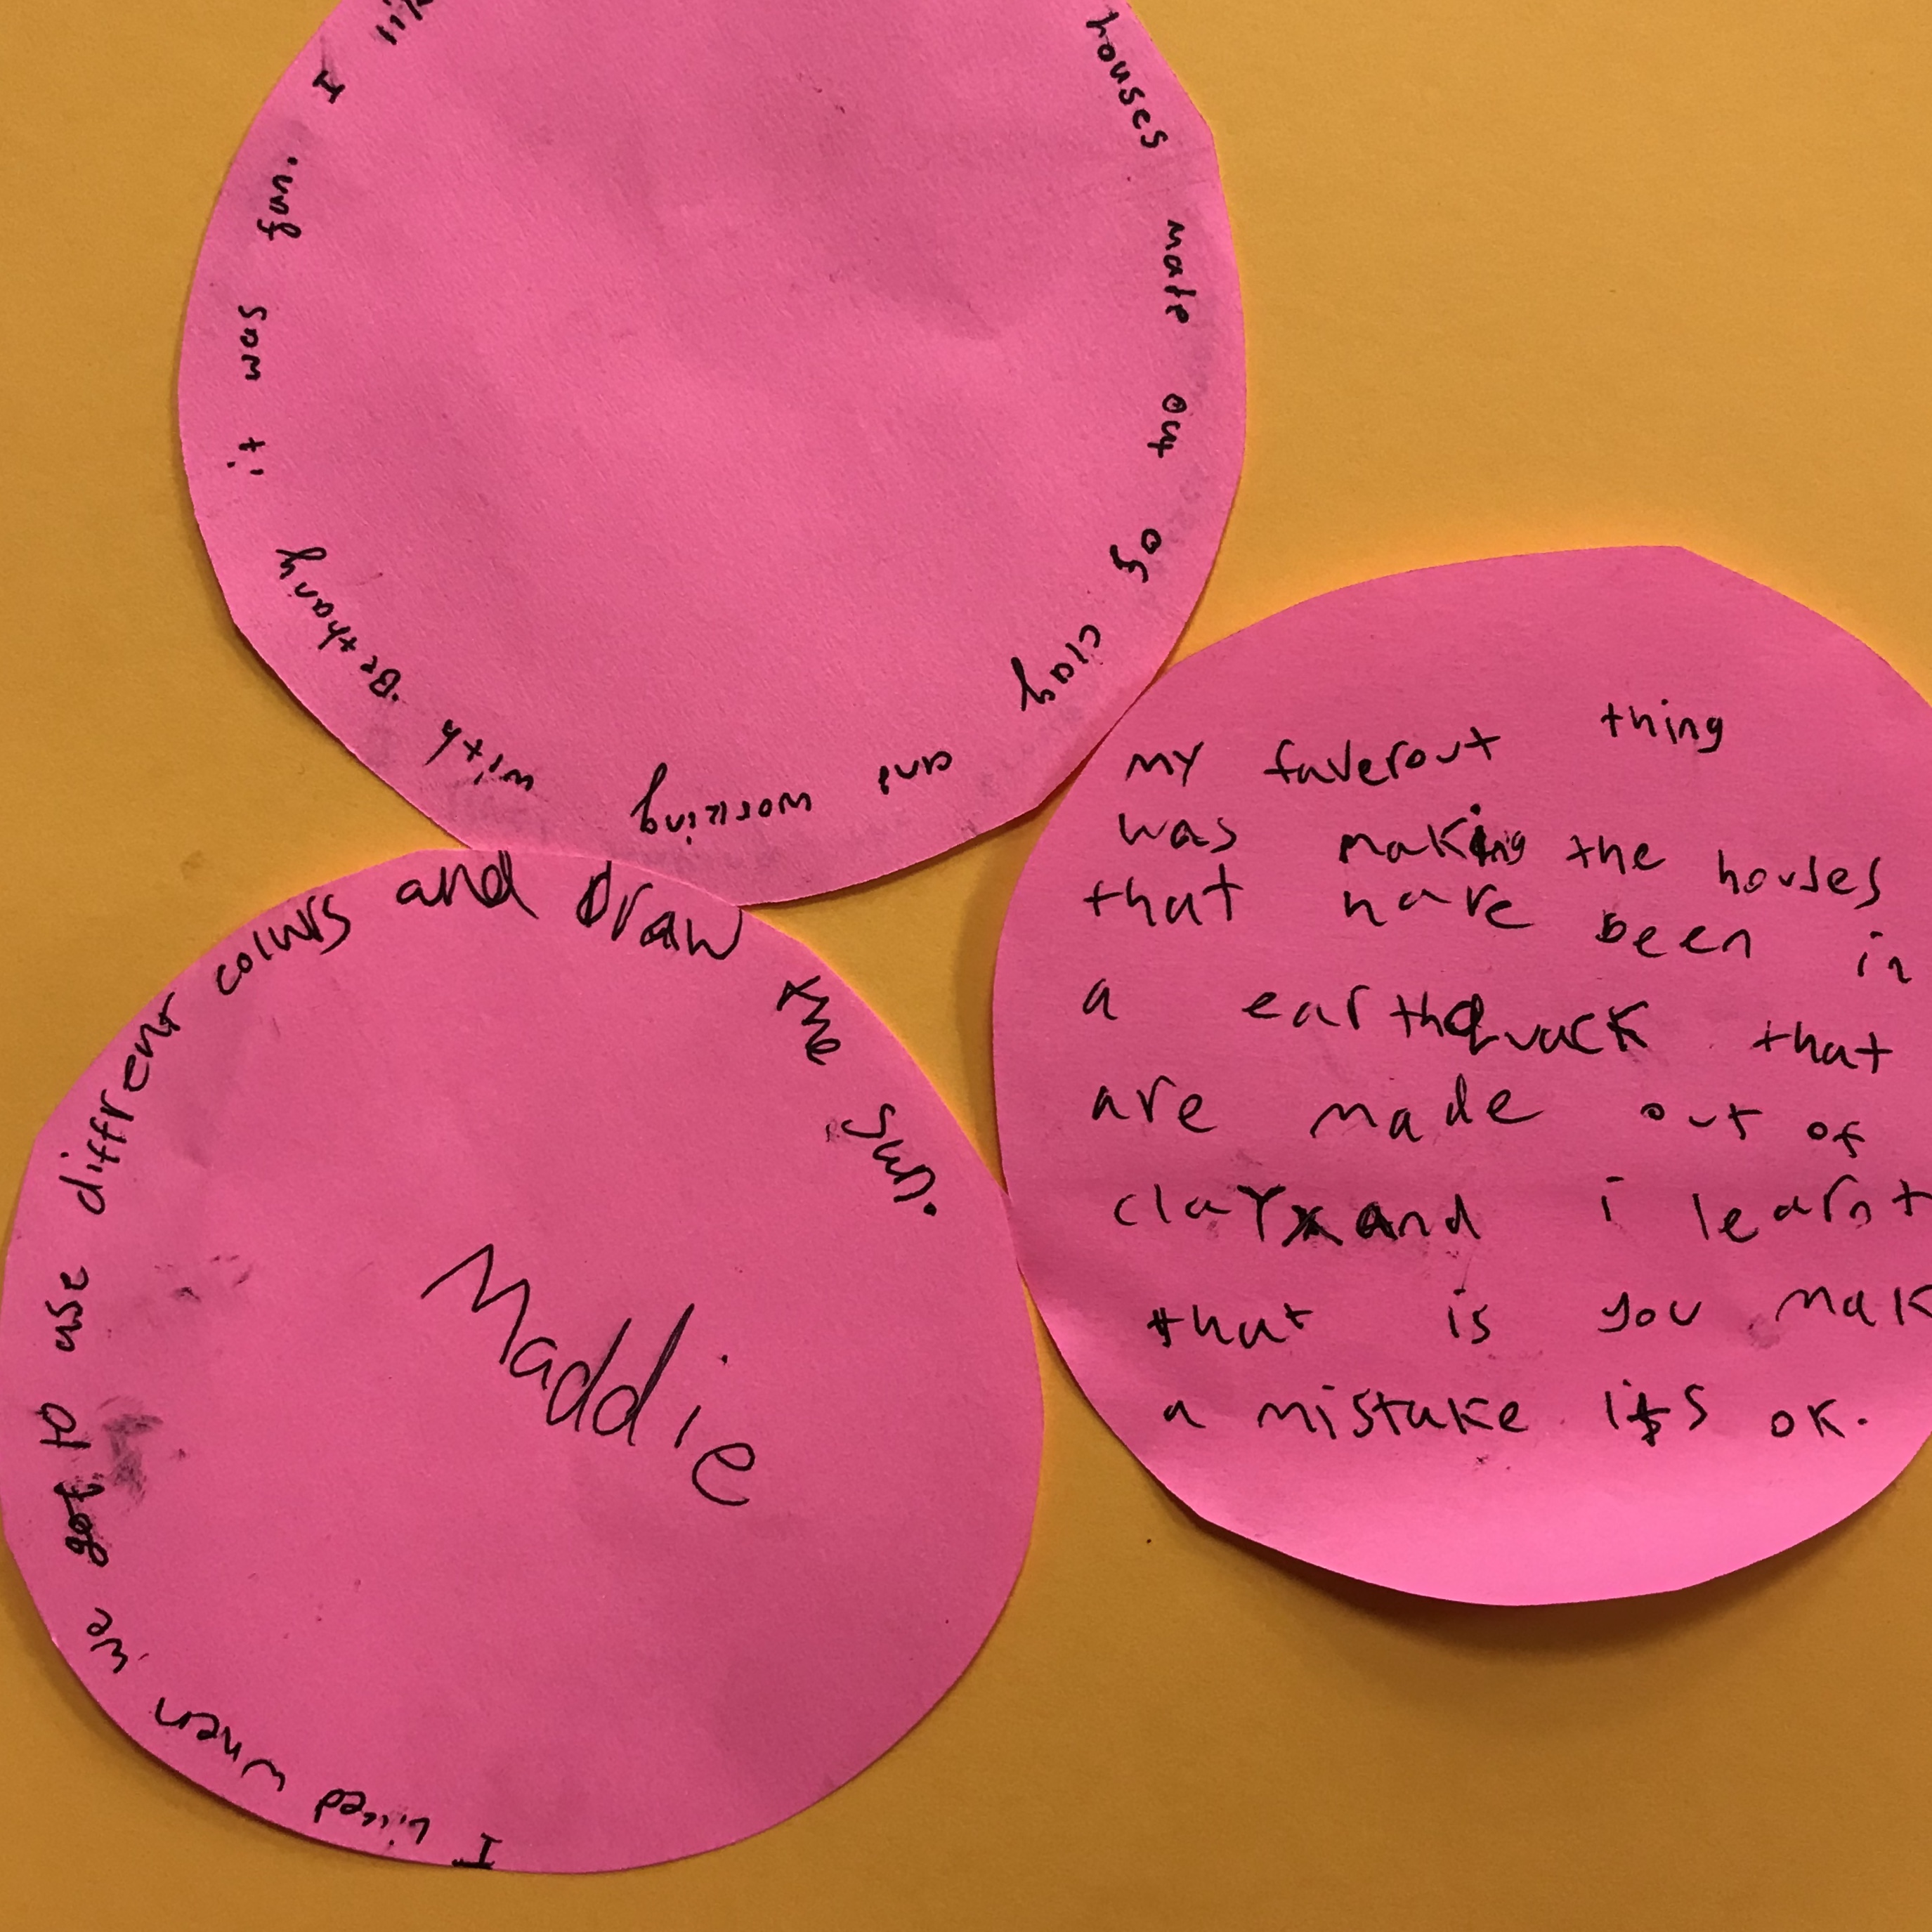 houses made out of clay and working with Bethany it was fun. I
my faverout thing
was making the houses
that have been in
a earthquack that
are made out of
clay and i learnt
that is you mak
a mistake its ok.
I Liked when we got to use diffrent colurs and draw the sun.
Maddie